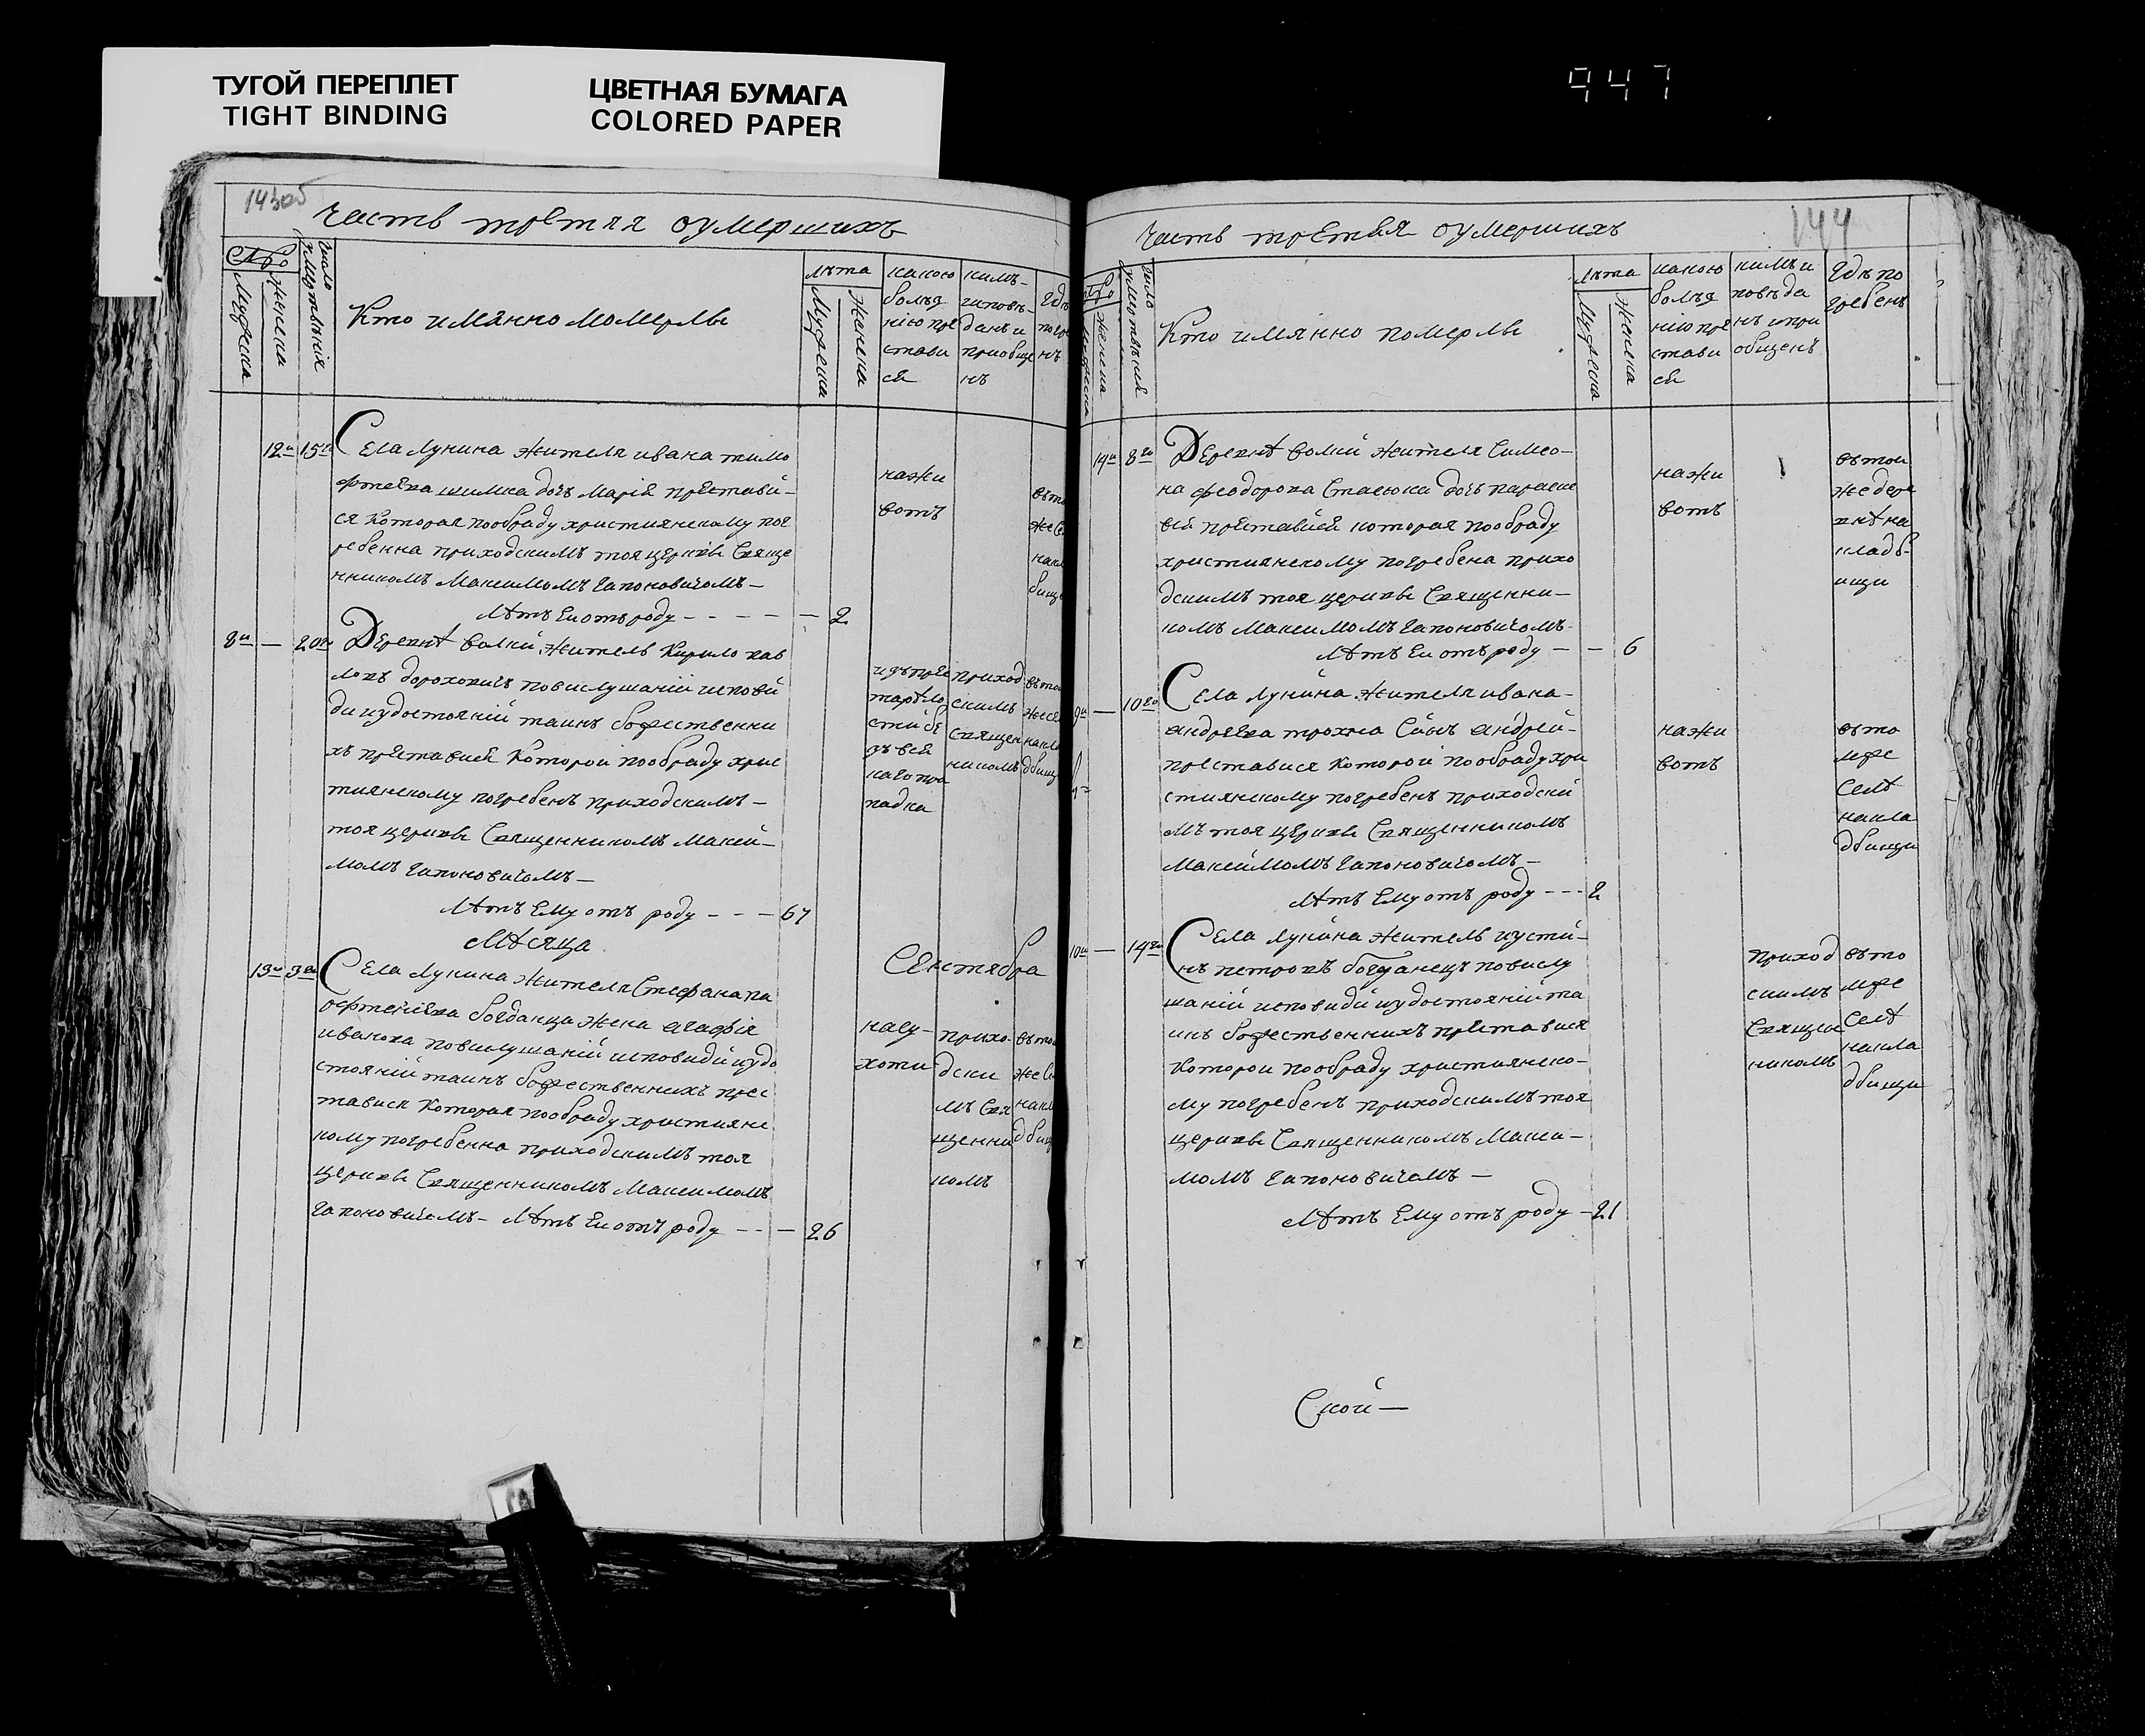 ТУГОЙ ПЕРЕПЛЕТ
TIGHT BINDING
ЦВЕТНАЯ БУМАГА
COLORED PAPER
947
143об
Часть третяя оумершихъ
Число
Мужеска
женска
Кто имянно померлъ
лѣта
Мужеска
Женска
какою
болѣз
нію пре
стави
ся
кимъ
исповѣ
данъ и
приобще
нъ
12й 15го Села Лунина жителя ивана тимо
фѣева шимка дочъ Марія преставй-
ся которая пообраду християнскому пог
ребенна приходскимъ тоя церквѣ Свяще
нникомъ Максимомъ Гапоновичомъ-
Лѣтъ Еи отъ роду - - - - - 2
нажи
вотъ
8й — 20го Деревнѣ волки житель Кирило пав
ловъ дороховичъ повислушаній исповѣ
ди иудостояній таинъ божественни
хъ преставися Которои пообраду хрис
тиянскому погребенъ приходскимъ-
тоя церквѣ Священникомъ Макси-
момъ Гапоновичомъ-
Лѣтъ Ему отъ роду - - - 67
приход
скимъ
священ
никомъ
Мѣсяца
Сентября
13й 3го Села Лунина жителя Стефана па
рфенієва богданца жена агафія
иванова повислушаній исповиди иудо
стояній таинъ божественнихъ прес
тавися Которая пообраду християнс
кому погребенна приходскимъ тоя
церквѣ Священникомъ Максимомъ
Гапоновичомъ- Лѣтъ Еи отъ роду - - - 26
насу-
хоти
прихо-
дски
мъ Свя
щенни
комъ
144
Часть третья оумершихъ
Кто имянно померлъ
лѣта
Мужеска
Женска
какою
болѣз
нію пре
стави
ся
кимъ и
повѣда
нъ ипри
общенъ
Гдѣ по
гребенъ
14й 8го Деревнѣ волки жителя Симео-
на феодорова Стасюка дочъ параске
вія преставися которая пообраду
християнскому погребена прихо
дскимъ тоя церквѣ Священни-
комъ Максимомъ Гапоновичомъ-
Лѣтъ Еи отъ роду - - 6
нажи
вотъ
втои
же дере
внѣ на
кладб-
ищи
9й — 10го Села Лунина жителя ивана-
андреева трохма Синъ андрей-
преставися Которой пообраду хри
стиянскому погребенъ приходски
мъ тоя церквѣ Священникомъ
Максимомъ Гапоновичомъ-
Лѣтъ Ему отъ роду - - - 2
нажи
вотъ
вѣто
мже
Селѣ
накла
дбищи
10й — 14го Села Лунина житель иусти-
нъ петровъ богданецъ повислу
шаній исповиди иудостояній та
инъ божественнихъ преставися
Которои пообраду християнско-
му погребенъ приходскимъ тоя
церквѣ Священникомъ Макси-
момъ Гапоновичомъ-
Лѣтъ Ему отъ роду - 21
приход
скимъ
Священ
никомъ
вѣто
мже
Селѣ
накла
дбищи
Ской-